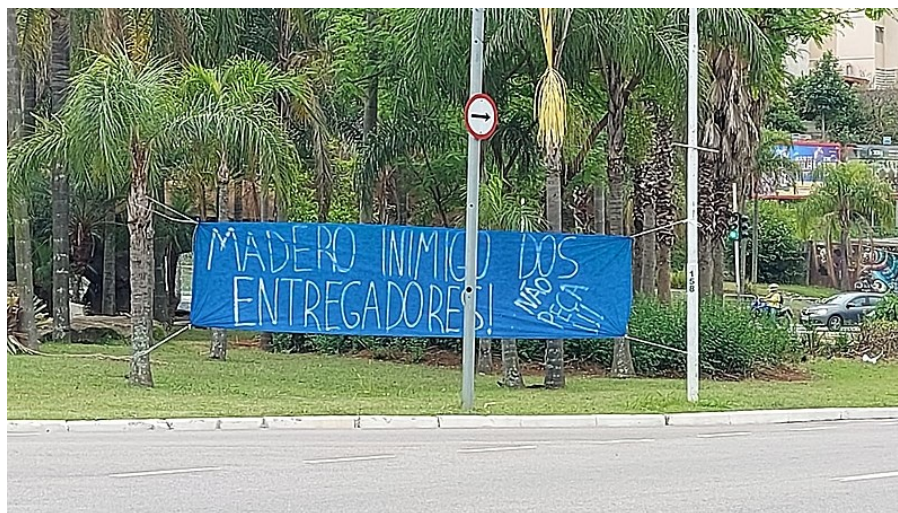 MADERO INIMIGO DOS
ENTREGADORES!
NÃO
PEÇA
!!!
158